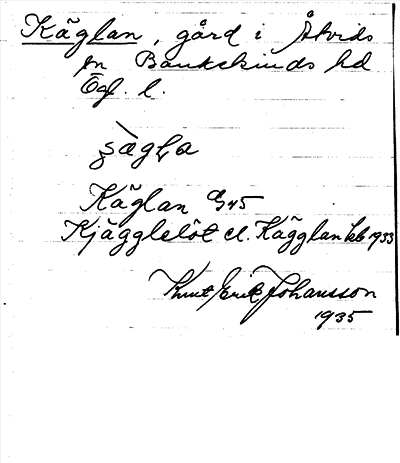 Käglan, gård i Åtvids
sn Bankekinds hd
Ögl. l.
Käglan G45
Kjägglelöt el. Kägglan kb 1933
Knut Erik Johansson
1935